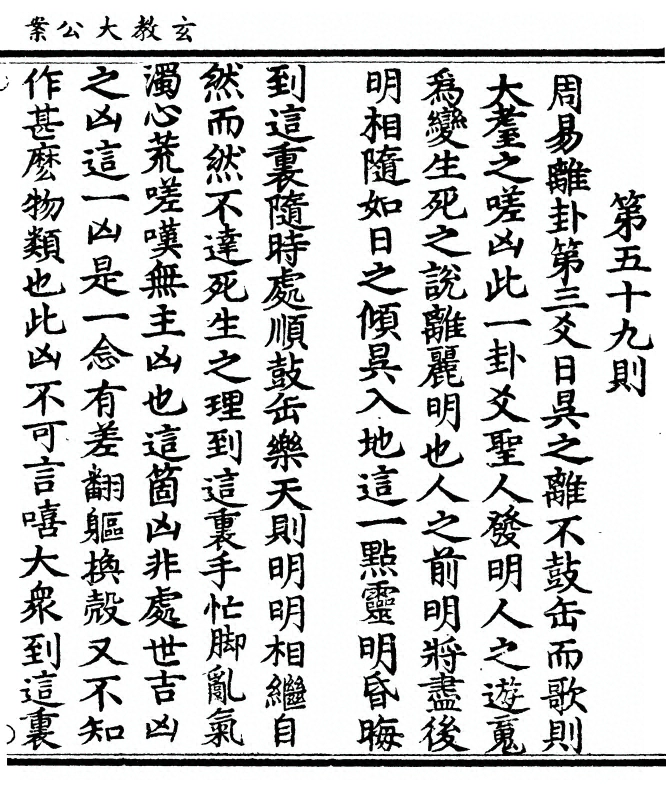 玄教大公案
第五十九則
周易離卦第三爻日昃之離不鼓缶而歌則
大耋之嗟凶此一卦爻聖人發明人之遊䰟
爲變生死之說離麗明也人之前明將盡後
明相隨如日之傾昃入地這一點靈明昏晦
到這裏隨時處順鼓缶樂天則明明相繼自
然而然不達死生之理到這裏手忙脚亂氣
濁心荒嗟嘆無主凶也這箇凶非處世吉凶
之凶這一凶是一念有差翻軀換殼又不知
作甚麽物類也此凶不可言嘻大衆到這裏